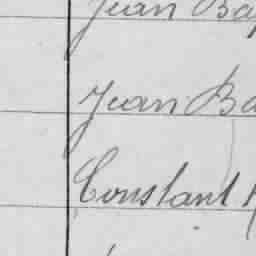 Jean Ba
Jean Ba
Constant